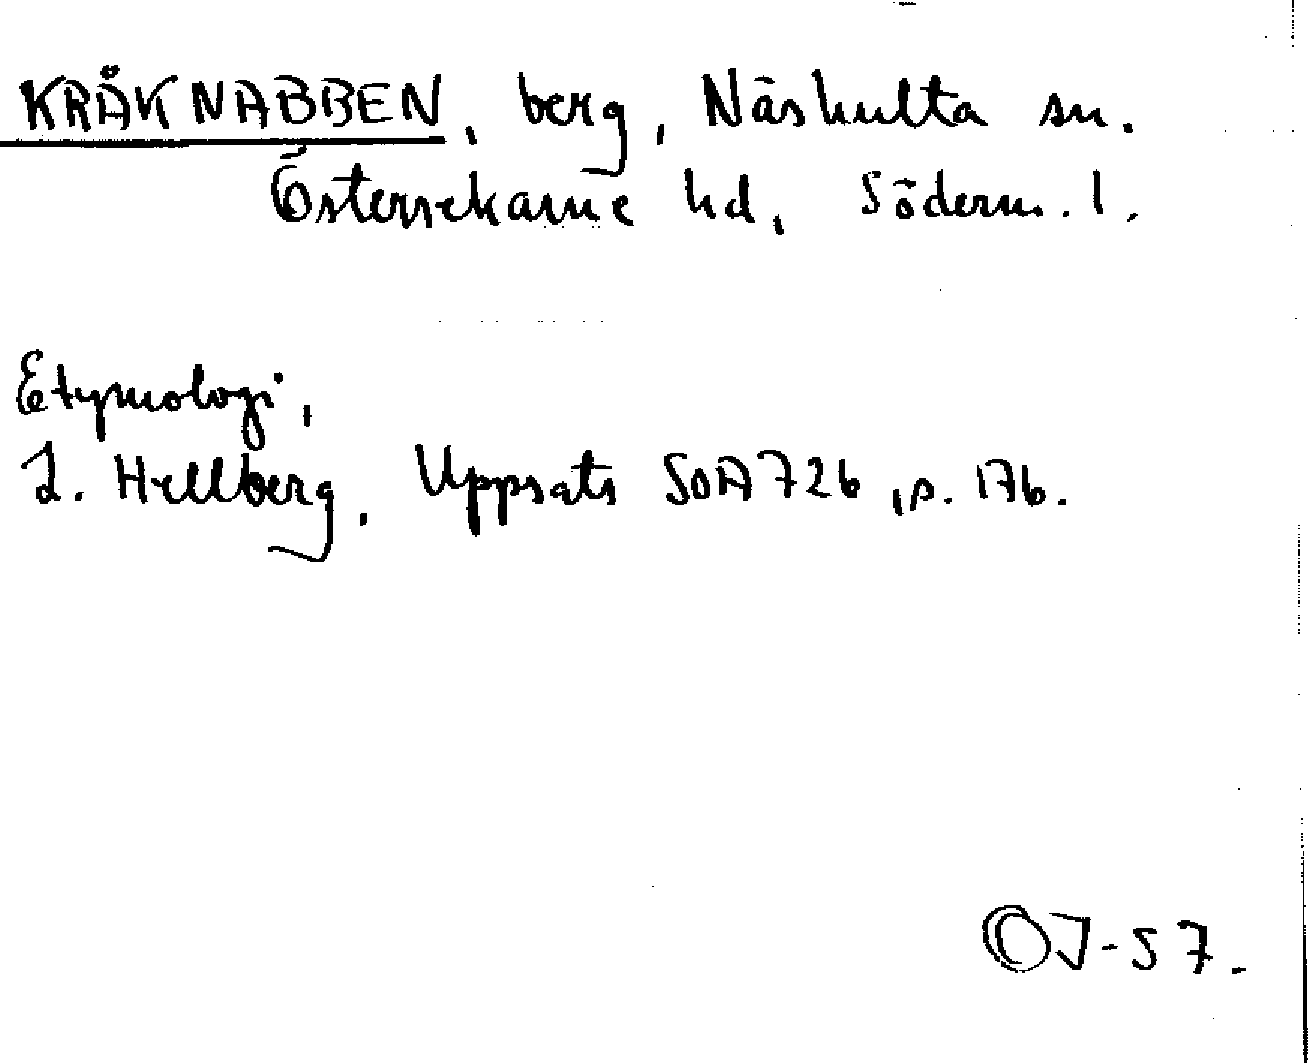 KRÅKNABBEN, berg, Näshulta sn.
Österrekarne hd, Söderm. l.
Etymologi,
L. Hellberg, Uppsats SOA 726, s. 176.
OJ-57.